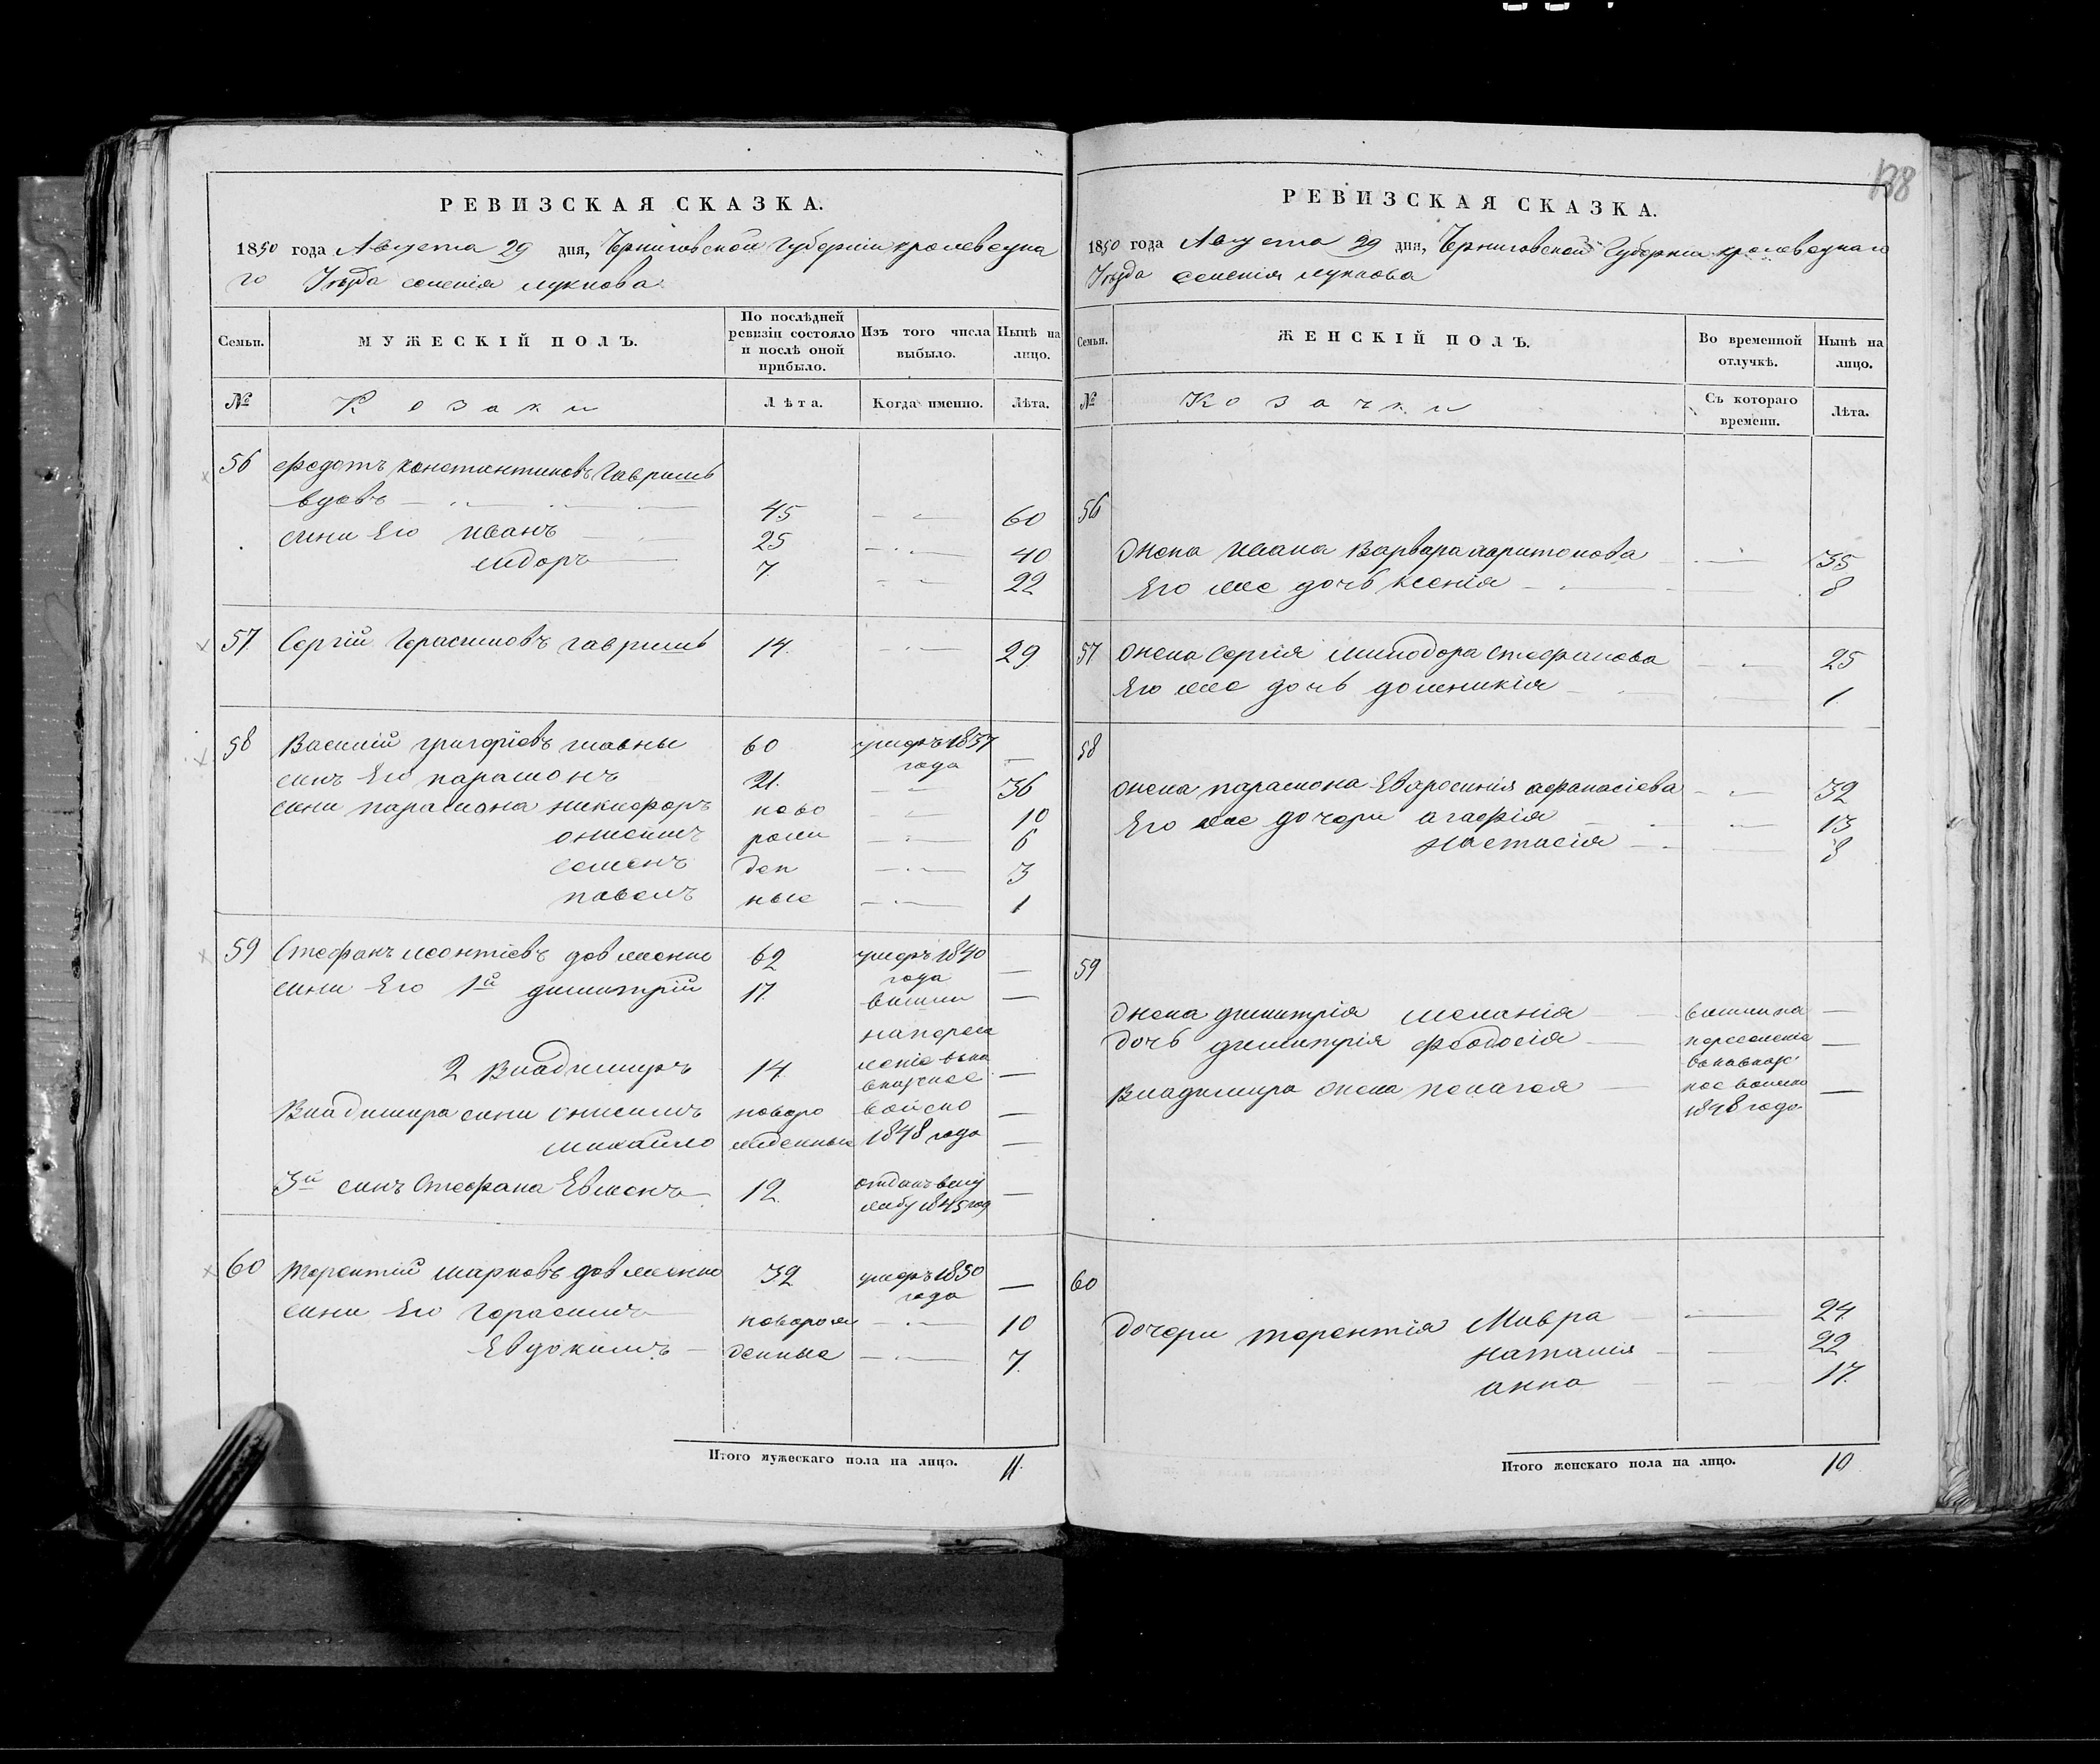 138
РЕВИЗСКАЯ СКАЗКА.
1850 года Августа 29 дня, Черниговской Губерніи кролевецка
го Уѣзда селенія лукнова
Семьи. МУЖЕСКІЙ ПОЛЪ. По послѣдней ревизіи состояло и послѣ оной прибыло. Изъ того числа выбыло. Нынѣ на лицо.
№ Козаки Лѣта. Когда именно. Лѣта.
56 Федотъ константиновъ Гавришь
вдовъ 45 60
сини Его иванъ 25 40
сидоръ 7. 22
57 Сергій Герасимовъ гавришь 14. 29
58 Василій григоріевъ 60 умеръ 1837 года —
синъ Его парамонъ 21. 36
сини парамона никифоръ ново 10
онисимъ рож 6
семенъ ден 3
павелъ ные 1
59 Стефанъ леонтіевъ довженко 62 умеръ 1840 года —
сини Его 1й димитрій 17. вышли —
на пересе
2 Владимиръ 14. леніе вька
вказкое —
Владимира сини онисимъ новоро войско —
михайло жденные 1848 года —
3й синъ Стефана Евменъ 12. отданъ вслу
жбу 1845 год —
60 терентій марковъ довженко 32 умеръ 1850 года —
сини Его Герасимъ новорож 10
Евдокимъ денные 7.
Итого мужескаго пола на лицо. 11.
РЕВИЗСКАЯ СКАЗКА.
1850 года Августа 29 дня, Черниговской Губерніи кролевецкаго
Уѣзда селенія лукнова
Семьи. ЖЕНСКІЙ ПОЛЪ. Во временной отлучкѣ. Нынѣ на лицо.
№ Козачки Съ котораго времени. Лѣта.
56
Жена ивана Варвара харитонова 35
Его же дочь ксенія 8
57 жена Сергія Минодора стефанова 25
Его же дочь домникія 1.
58
жена парамона Евфросинія афанасіева 32
Его же дочери агафія 13
настасія 8
59
Жена димитрія меланія вышли на —
дочь димитрія феодосія переселеніе —
вькавказс
Владимира жена пелагея кое войско —
1848 года
60
Дочери терентія Мавра 24.
наталія 22
анна 17.
Итого женскаго пола на лицо. 10